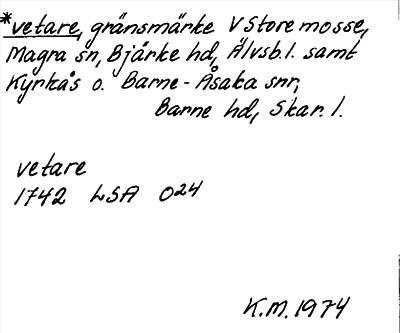 *vetare, gränsmärke V Store mosse,
Magra sn, Bjärke hd, Älvsb. l. samt
Kyrkås o. Barne-Åsaka snr,
Barne hd, Skar. l.
vetare
1742 LSA O24
K.M. 1974